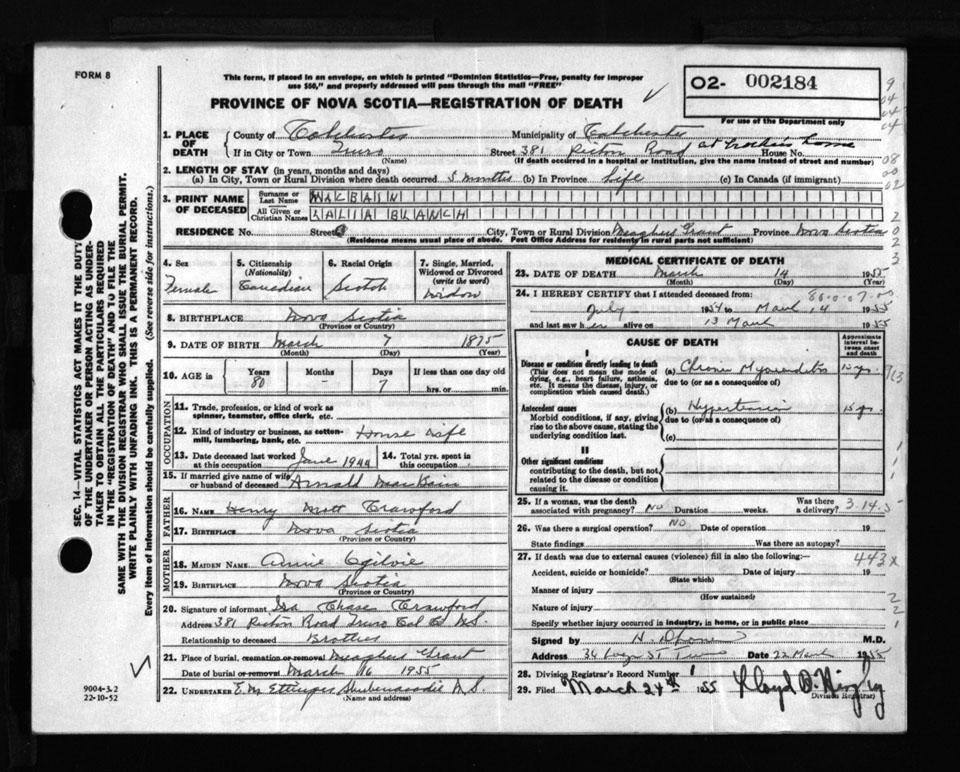 FORM 8
This form, if placed in an envelope, on which is printed "Dominion Statistics—Free, penalty for improper
use $50," and properly addressed will pass through the mail "FREE"
PROVINCE OF NOVA SCOTIA—REGISTRATION OF DEATH
O2- 002184
For use of the Department only
1. PLACE OF DEATH County of Colchester Municipality of Colchester
If in City or Town Truro Street 381 Pictou Road at brother's home House No.
(Name) (If death occurred in a hospital or institution, give the name instead of street and number)
2. LENGTH OF STAY (in years, months and days)
(a) In City, Town or Rural Division where death occurred 5 months (b) In Province Life (c) In Canada (if immigrant)
3. PRINT NAME OF DECEASED Surname or Last Name MACBAIN
All Given or Christian Names LALIA BLANCH
RESIDENCE No. Street City, Town or Rural Division Meaghers Grant Province Nova Scotia
(Residence means usual place of abode. Post Office Address for residents in rural parts not sufficient)
4. Sex Female
5. Citizenship (Nationality) Canadian
6. Racial Origin Scotch
7. Single, Married, Widowed or Divorced (write the word) Widow
8. BIRTHPLACE Nova Scotia
(Province or Country)
9. DATE OF BIRTH March 7 1875
(Month) (Day) (Year)
10. AGE in Years 80 Months - Days 7 If less than one day hrs. or min.
OCCUPATION
11. Trade, profession, or kind of work as spinner, teamster, office clerk, etc.
12. Kind of industry or business, as cotton-mill, lumbering, bank, etc. House Wife
13. Date deceased last worked at this occupation June 1944 14. Total yrs. spent in this occupation
15. If married give name of wife or husband of deceased Arnold MacBain
FATHER
16. Name Henry Mott Crawford
17. Birthplace Nova Scotia
(Province or Country)
MOTHER
18. MAIDEN NAME Annie Ogilvie
19. BIRTHPLACE Nova Scotia
(Province or Country)
20. Signature of informant Ira Chase Crawford
Address 381 Pictou Road Truro Col Co N.S.
Relationship to deceased Brother
21. Place of burial, cremation or removal Meaghers Grant
Date of burial or removal March 16 1955
22. UNDERTAKER E.M. Ettinger Shubenacadie N.S.
(Name and address)
MEDICAL CERTIFICATE OF DEATH
23. DATE OF DEATH March 14 1955
(Month) (Day) (Year)
24. I HEREBY CERTIFY that I attended deceased from:
July 1954 to March 14 1955
and last saw her alive on 13 March 1955
CAUSE OF DEATH
Approximate interval between onset and death
I
Disease or condition directly leading to death (a) Chronic Myocarditis
(This does not mean the mode of dying, e.g., heart failure, asthenia, etc. It means the disease, injury, or complication which caused death.)
due to (or as a consequence of)
Antecedent causes (b) Hypertension 15 yrs.
Morbid conditions, if any, giving rise to the above cause, stating the underlying condition last.
due to (or as a consequence of)
(c)
II
Other significant conditions
contributing to the death, but not related to the disease or condition causing it.
25. If a woman, was the death associated with pregnancy? NO Duration weeks. Was there a delivery?
26. Was there a surgical operation? NO Date of operation 19
State findings Was there an autopsy?
27. If death was due to external causes (violence) fill in also the following:—
443x
Accident, suicide or homicide? Date of injury 19
(State which)
Manner of injury
(How sustained)
Nature of injury
Specify whether injury occurred in industry, in home, or in public place
Signed by M.D.
Address Truro Date 22 March 1955
28. Division Registrar's Record Number
29. Filed March 24th 1955 Lloyd
Division Registrar)
9004-3.2
22-10-52
SEC. 14—VITAL STATISTICS ACT MAKES IT THE DUTY
OF THE UNDERTAKER OR PERSON ACTING AS UNDER-
TAKER TO OBTAIN ALL THE PARTICULARS REQUIRED
IN THE "REGISTRATION OF DEATH" AND TO FILE THE
SAME WITH THE DIVISION REGISTRAR WHO SHALL ISSUE THE BURIAL PERMIT.
WRITE PLAINLY WITH UNFADING INK. THIS IS A PERMANENT RECORD.
Every item of information should be carefully supplied. (See reverse side for instructions.)